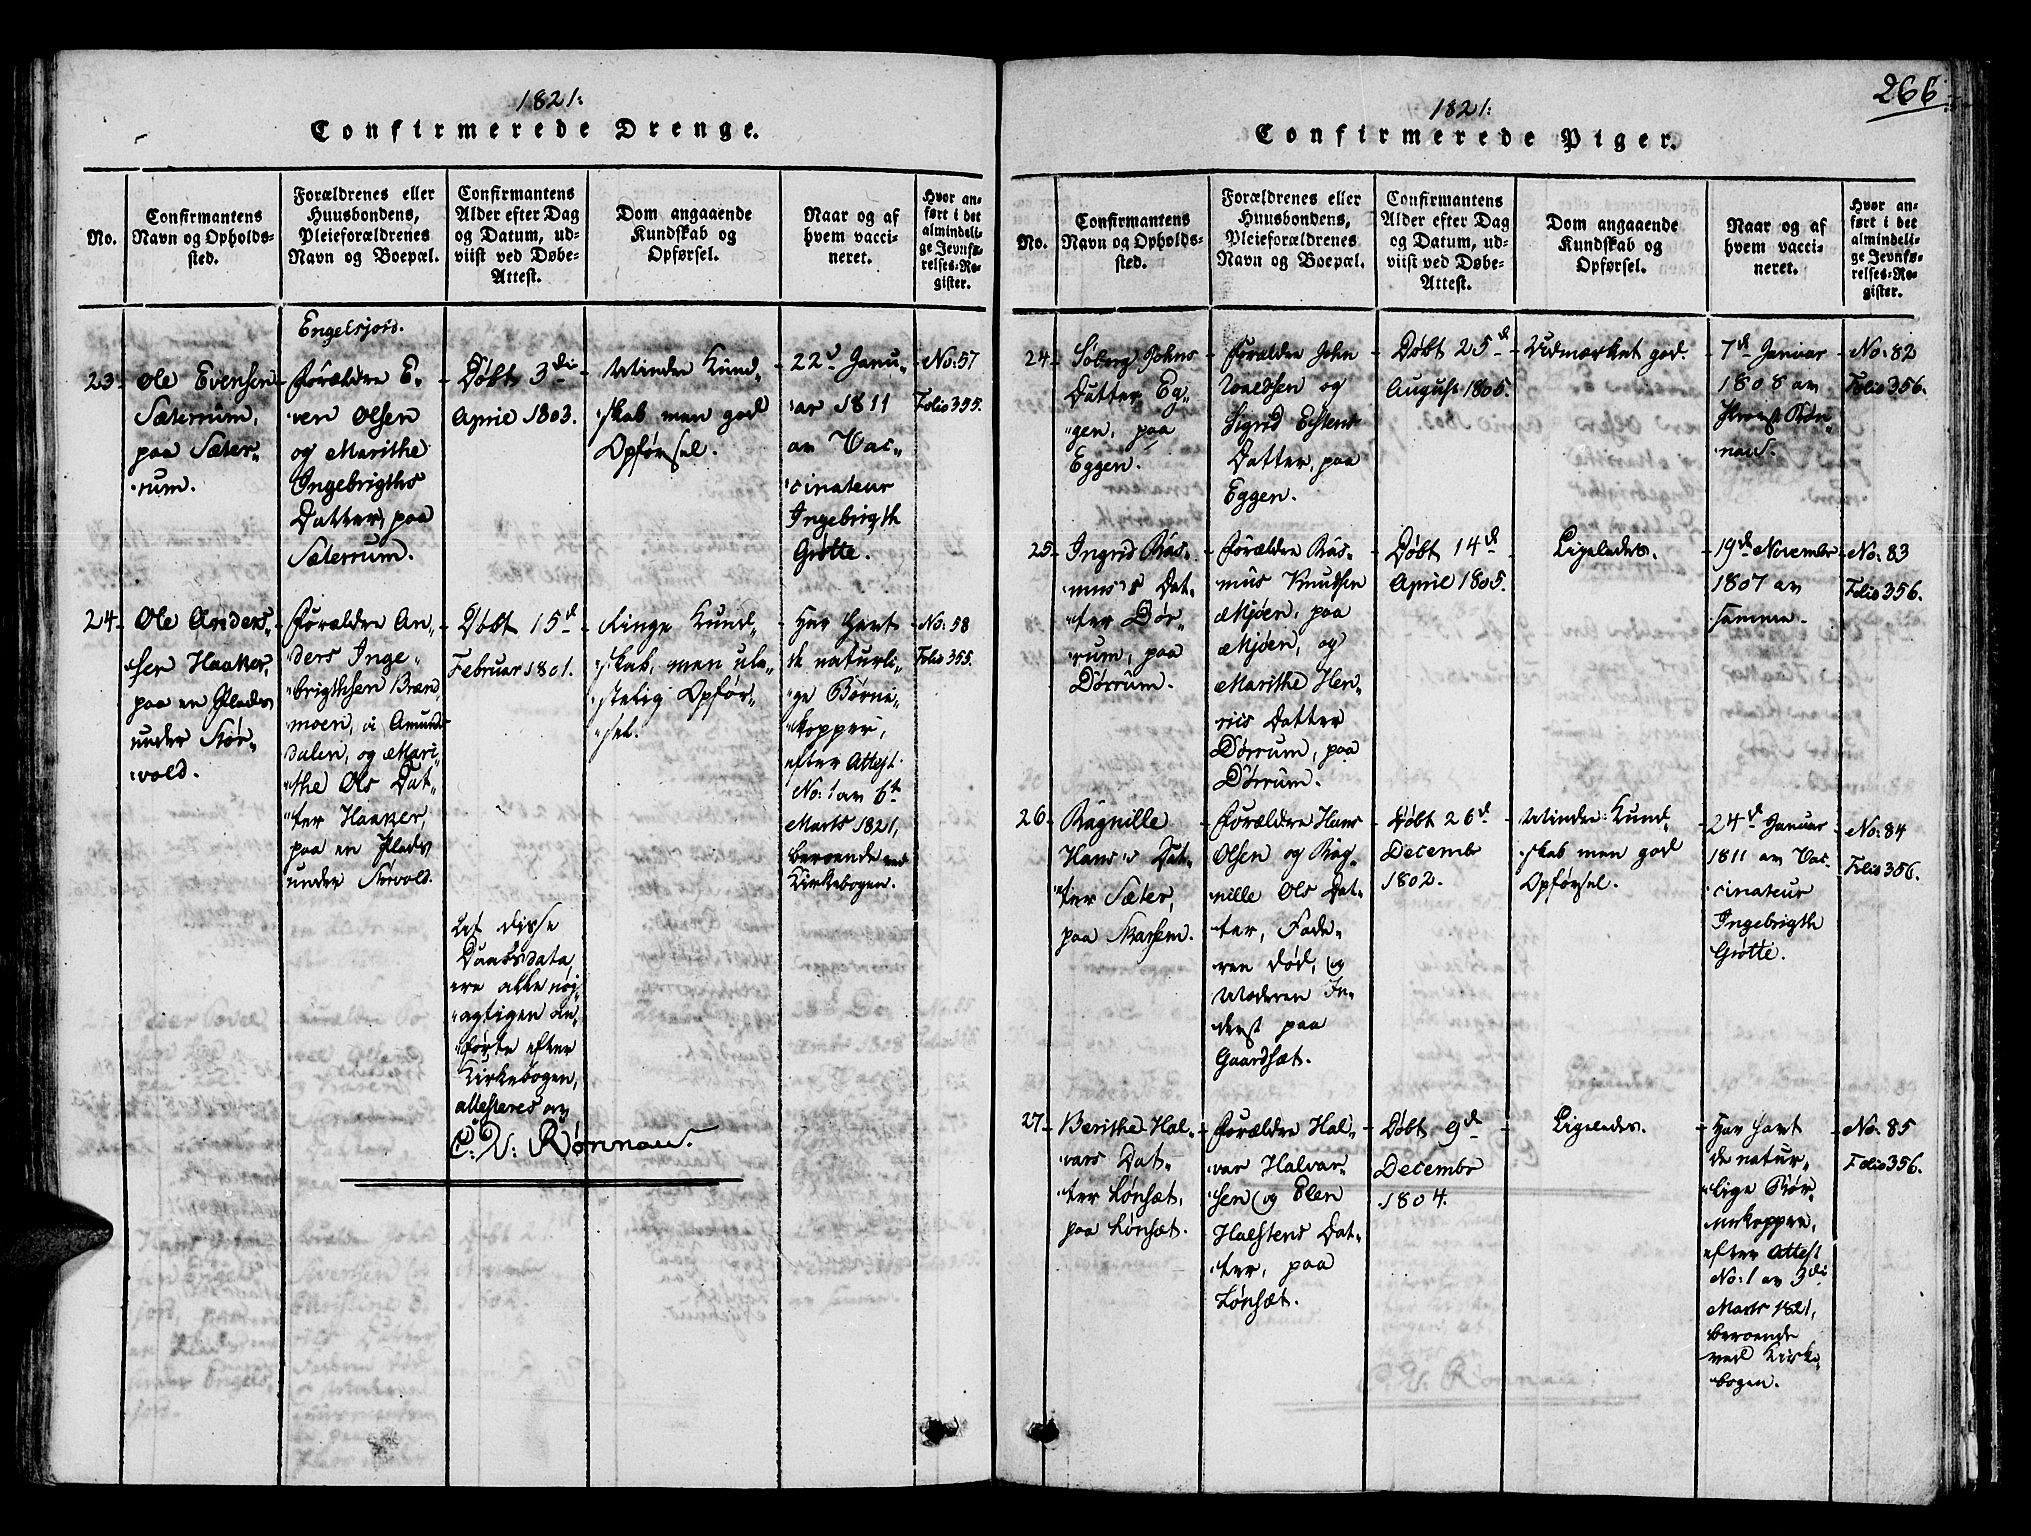 1821:
Confirmerede Drenge.
No.
Confirmantens
Navn og Opholds-
sted.
Forældrenes eller
Huusbondens,
Pleieforældrenes
Navn og Boepæl.
Confirmantens
Alder efter Dag
og Datum, ud-
viist ved Døbe-
Attest.
Dom angaaende
Kundskab og
Opførsel.
Naar og af
hvem vacci-
neret.
Hvor an-
ført i det
almindeli-
ge Jevnfø-
relses-Re-
gister.
Engelsjord.
23-
Ole Evensen
Sæterrum,
paa Sæter-
rum.
Forældre E-
ven Olsen
og Marithe
Ingebrigths
Datter, paa
Sæterrum.
Døbt 3di
April 1803.
Mindre Kund-
skab men god
Opførsel.
22d Janu-
ar 1811
av Vac-
cinateur
Ingebrigth
Grøtte.
No: 57
Folio 355.
24-
Ole Anders-
sen Haaker,
paa en Plads
under Stør-
vold.
Forældre An-
ders Inge-
brigthsen Bræn
moen, i Amunds
dalen, og Mari-
the Ols Dat-
ter Haaker,
paa en Plads
under Størvold.
Døbt 15d
Februar 1801.
Ringe Kund-
skab, men ula-
stelig Opfør-
sel.
Har havt
de naturli-
ge Børne-
kopper,
efter Attest
No: 1 av 6te
Marts 1821,
beroende ved
Kirkebogen.
No: 58
Folio 355.
At disse
Daabsdata
ere alle nøj-
agtigen an-
førte efter
Kirkebogen,
attesteres av
C: V: Rønnau.
266
1821:
Confirmerede Piger.
No.
Confirmantens
Navn og Opholds-
sted.
Forældrenes eller
Huusbondens,
Pleieforældrenes
Navn og Boepæl.
Confirmantens
Alder efter Dag
og Datum, ud-
viist ved Døbe-
Attest.
Dom angaaende
Kundskab og
Opførsel.
Naar og af
hvem vacci-
neret.
Hvor an-
ført i det
almindeli-
ge Jevnfø-
relses-Re-
gister.
24-
Søborg Johns
Datter Eg-
gen, paa
Eggen.
Forældre John
og
Sigrid Estens
Datter, paa
Eggen.
Døbt 25d
August 1805.
Udmærket god.
7d Januar
1808 av
Provst Røn-
nau.
No: 82
Folio 356.
25-
Ingrid Ras-
mus's Dat-
ter Dør-
rum, paa
Dørrum.
Forældre Ras-
mus Knudsen
Mjøen, paa
Mjøen, og
Marithe Hen-
rics Datter
Dørrum, paa
Dørrum.
Døbt 14d
April 1805.
Ligeledes.
19d November
1807 av
samme.
No: 83
Folio 356.
26-
Ragnille
Hans's Dat-
ter Sæter,
paa Skarsem.
Forældre Hans
Olsen og Rag-
nille Ols Dat-
ter, Fade-
ren død, og
Moderen In-
derst paa
Gaardsæt.
Døbt 26d
Decembr
1802.
Mindre Kund-
skab men god
Opførsel.
24d Januar
1811 av Vac-
cinateur
Ingebrigth
Grøtte.
No: 84
Folio 356.
27-
Berithe Hal-
vars Dat-
ter Lønsæt,
paa Lønsæt.
Forældre Hal-
var Halvar-
sen og Elen
Halstens Dat-
ter, paa
Lønsæt.
Døbt 9d
Decembr
1804.
Ligeledes.
Har havt
de natur-
lige Bør-
nekopper,
efter Attest
No: 1 av 3di
Marts 1821,
beroende
ved Kirke-
bogen.
No: 85
Folio 356.